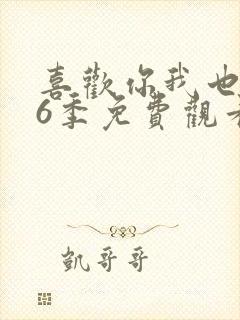 喜歡你我也
6季免費觀
凱哥哥